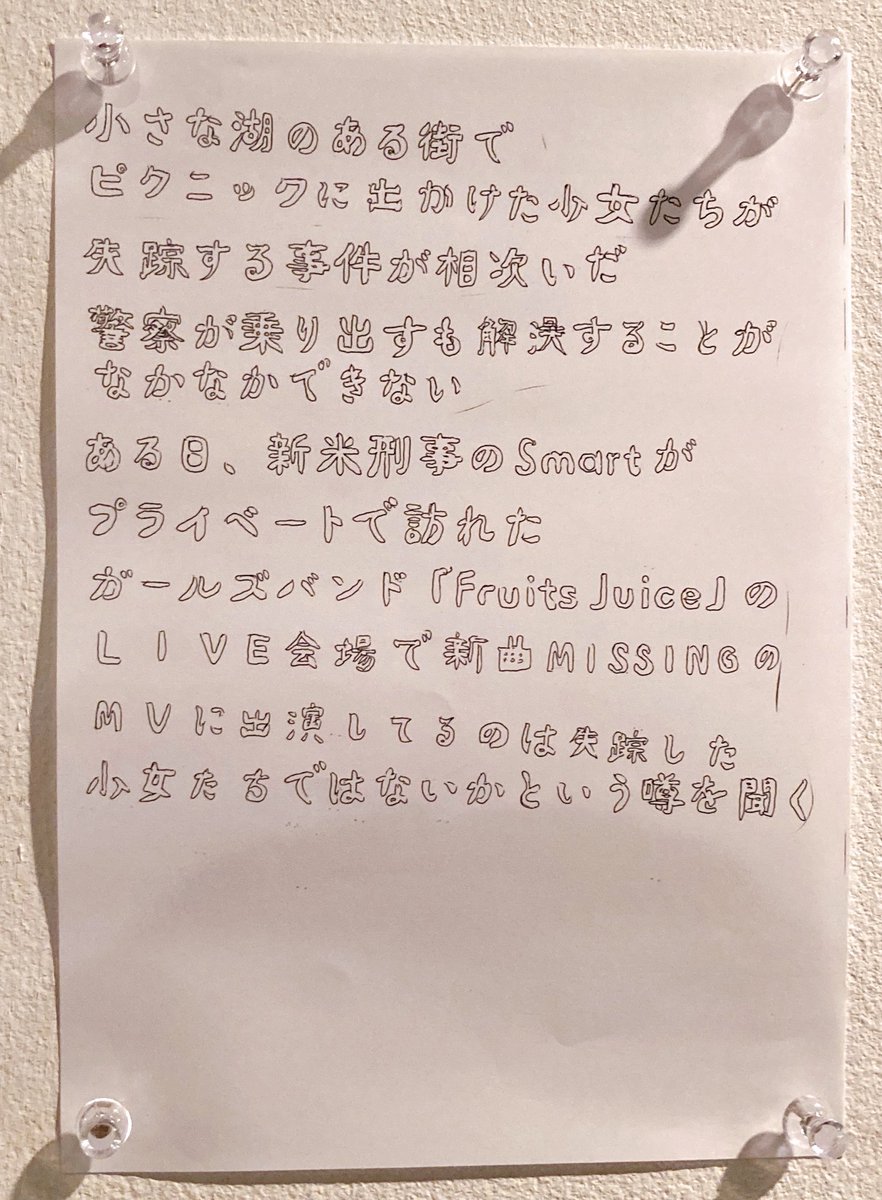 小さな湖のある街で
ピクニックに出かけた少女たちが
失踪する事件が相次いだ
警察が乗り出すも解決することが
なかなかできない
ある日、新米刑事のSmartが
プライベートで訪れた
ガールズバンド「Fruits Juice」の
LIVE会場で新曲MISSINGの
MVに出演してるのは失踪した
少女たちではないかという噂を聞く